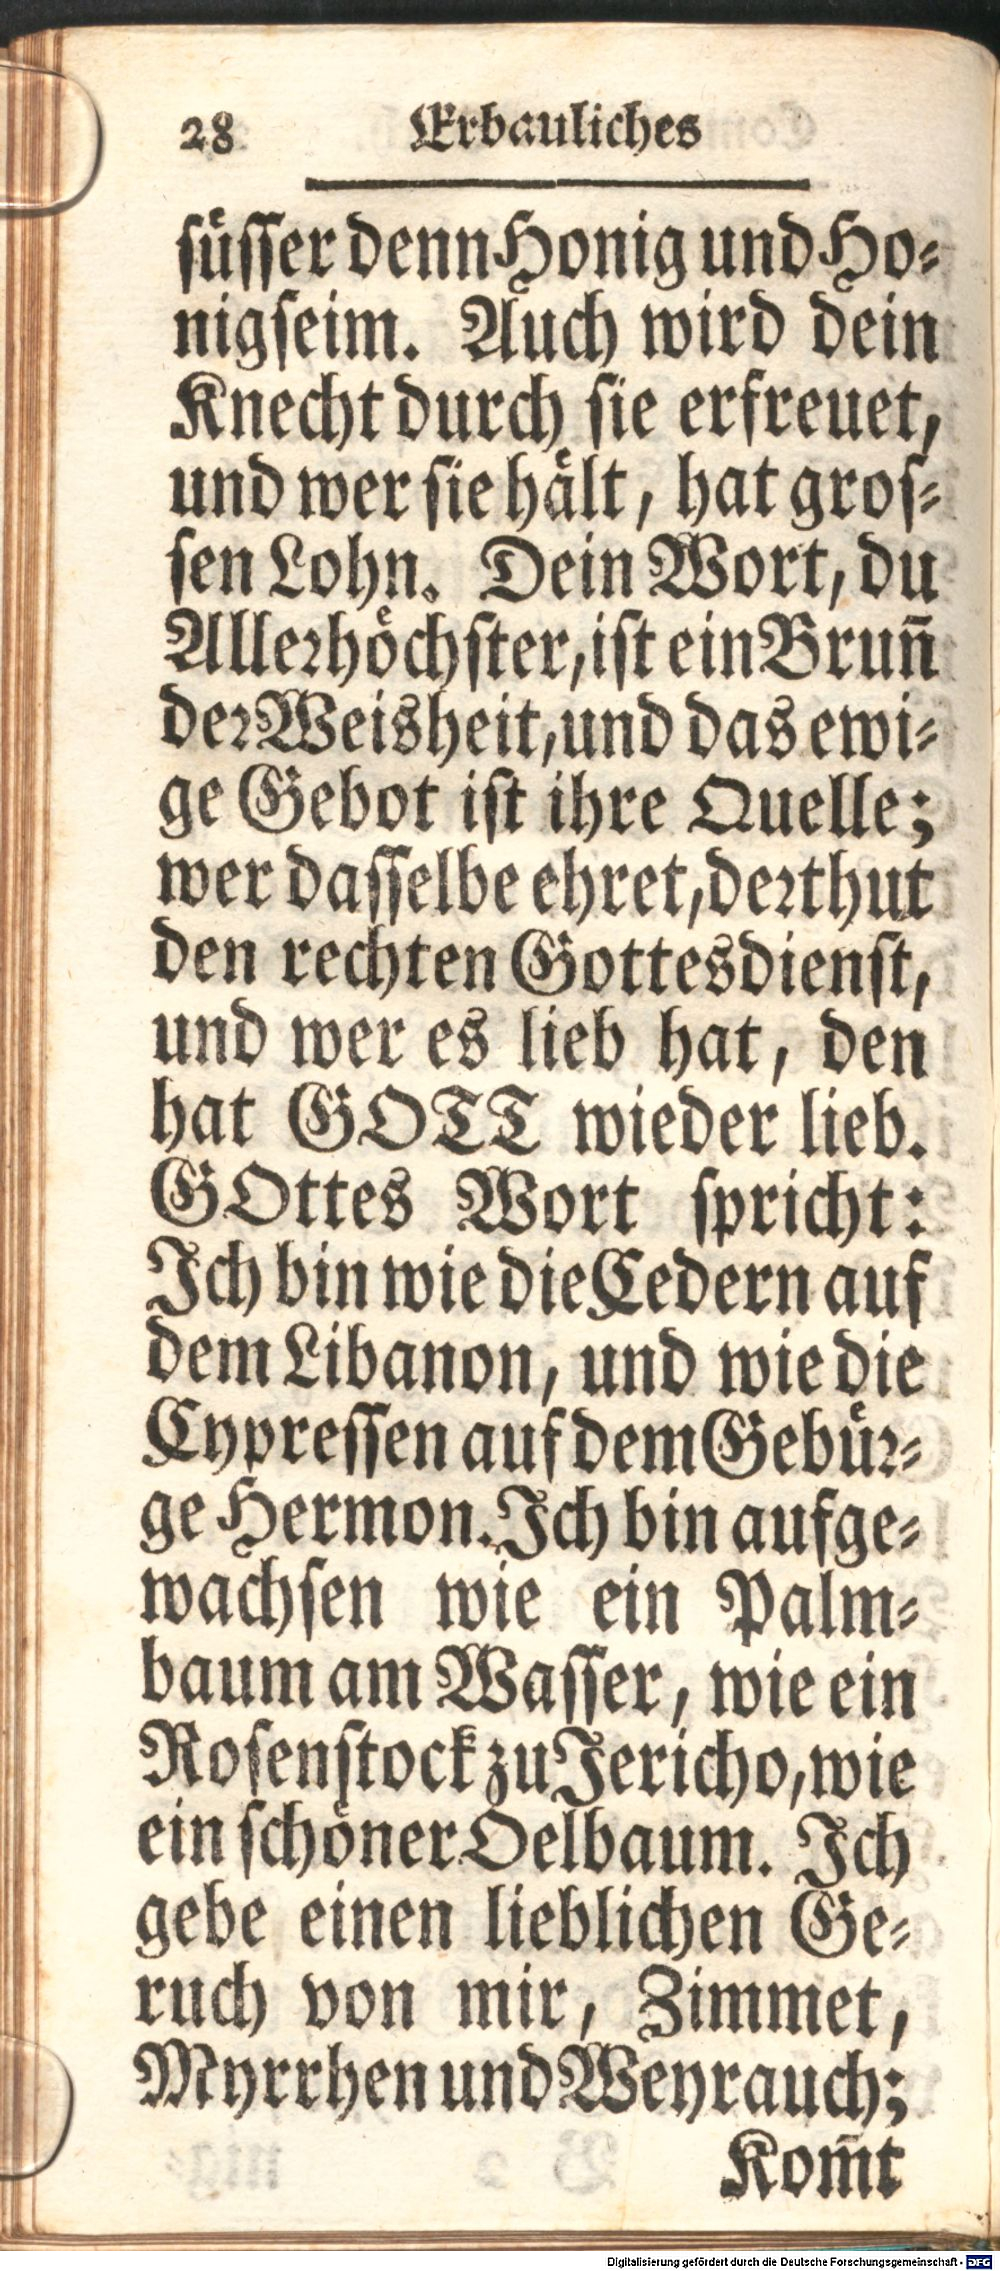 28 Erbauliches
süsser denn Honig und Ho-
nigseim. Auch wird dein
Knecht durch sie erfreuet,
und wer sie hält, hat gros-
sen Lohn. Dein Wort, du
Allerhöchster, ist ein Brun̄
der Weisheit, und das ewi-
ge Gebot ist ihre Quelle;
wer dasselbe ehret, der thut
den rechten Gottesdienst,
und wer es lieb hat, den
hat GOTT wieder lieb.
GOttes Wort spricht:
Ich bin wie die Cedern auf
dem Libanon, und wie die
Cypressen auf dem Gebür-
ge Hermon. Ich bin aufge-
wachsen wie ein Palm-
baum am Wasser, wie ein
Rosenstock zu Jericho, wie
ein schöner Oelbaum. Ich
gebe einen lieblichen Ge-
ruch von mir, Zimmet,
Myrrhen und Weyrauch;
Kom̄t
Digitalisierung gefördert durch die Deutsche Forschungsgemeinschaft - DFG